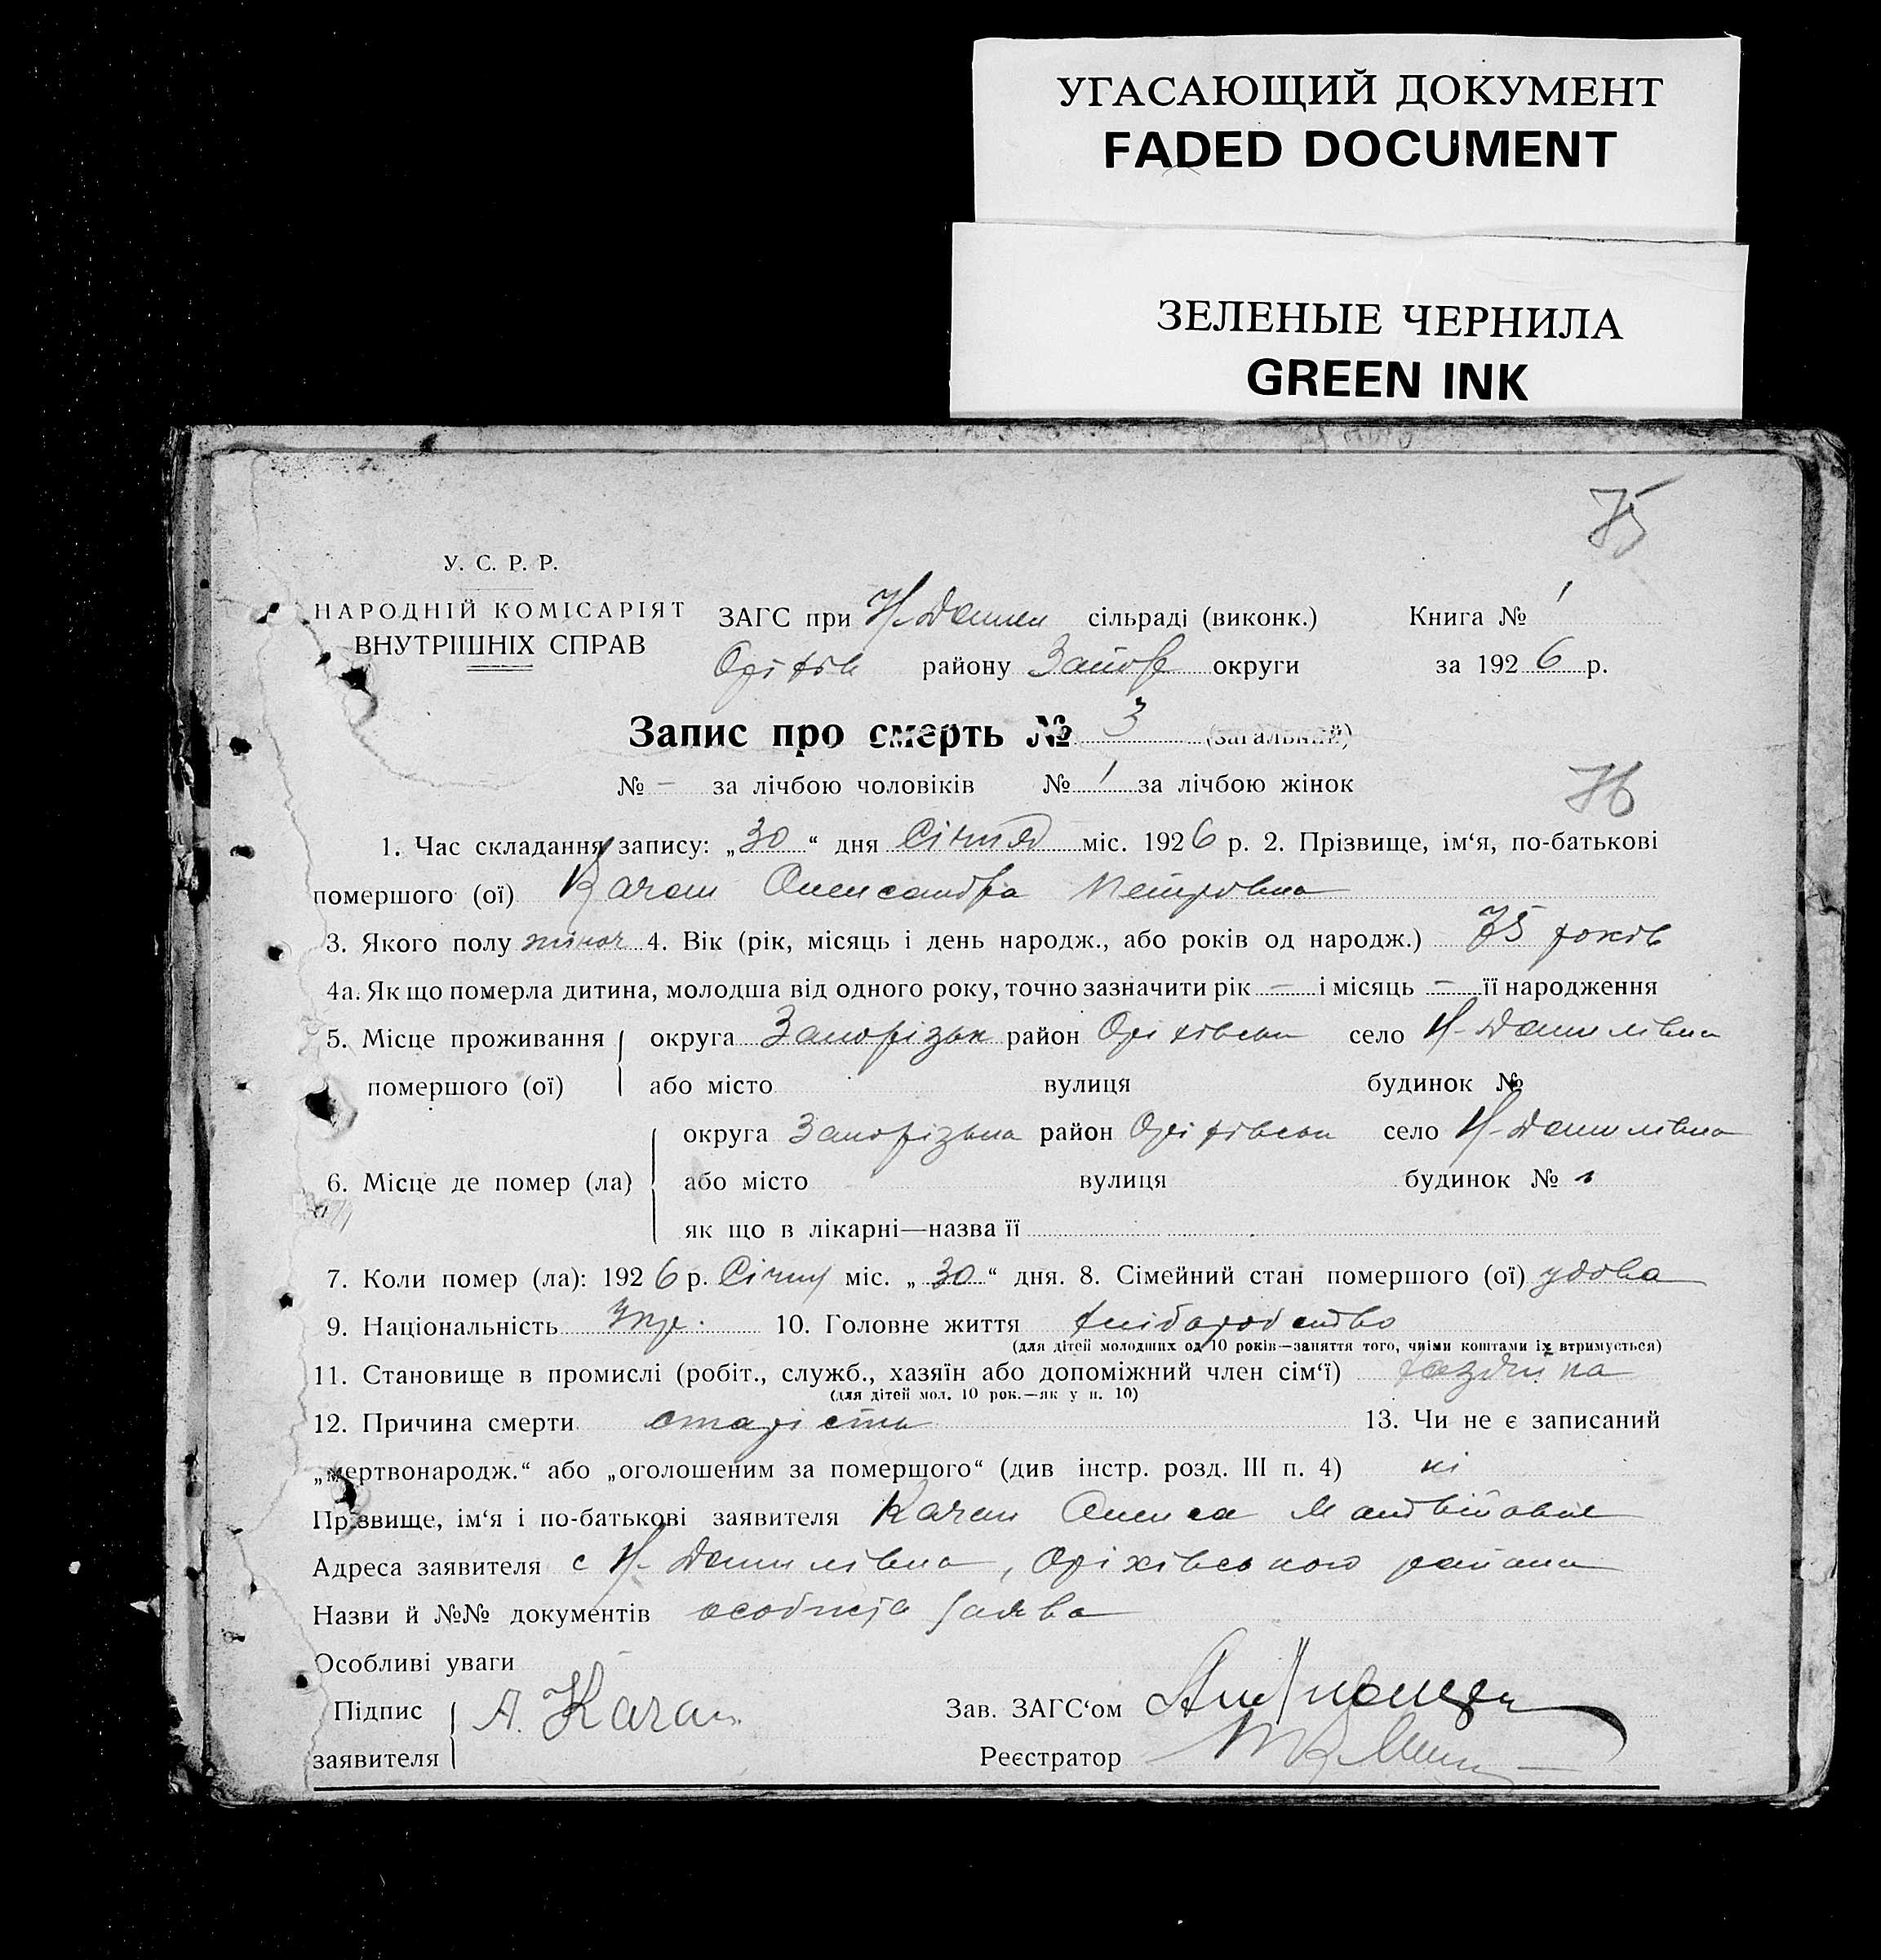 УГАСАЮЩИЙ ДОКУМЕНТ
FADED DOCUMENT
ЗЕЛЕНЫЕ ЧЕРНИЛА
GREEN INK
75
У. С. Р. Р.
НАРОДНІЙ КОМІСАРІЯТ
ВНУТРІШНІХ СПРАВ
ЗАГС при Н-Данил сільраді (виконк.) Книга № 1
Оріхів району Запор округи за 1926 р.
Запис про смерть № 3 (загальний)
№ — за лічбою чоловіків № 1 за лічбою жінок
1. Час складання запису: „30“ дня Січня міс. 1926 р. 2. Прізвище, ім‘я, по-батькові
помершого (ої) Качан Олександра Петровна
3. Якого полу жіноч 4. Вік (рік, місяць і день народж., або років од народж.) 75 років
4а. Як що померла дитина, молодша від одного року, точно зазначити рік — і місяць — її народження
5. Місце проживання округа Запорізьк район Оріхівськ село Н-Данилівка
помершого (ої) або місто вулиця будинок №
округа Запорізька район Оріхівськ село Н-Данилівка
6. Місце де помер (ла) або місто вулиця будинок №
як що в лікарні—назва її
7. Коли помер (ла): 1926 р. Січня міс. „30“ дня. 8. Сімейний стан помершого (ої) удова
9. Національність Укр. 10. Головне життя хліборобство
(для дітей молодших од 10 років—заняття того, чиїми коштами їх втримується)
11. Становище в промислі (робіт., служб., хазяїн або допоміжний член сім‘ї) хазяйка
(для дітей мол. 10 рок.—як у п. 10)
12. Причина смерти старість 13. Чи не є записаний
„мертвонародж.“ або „оголошеним за помершого“ (див інстр. розд. III п. 4) ні
Прізвище, ім‘я і по-батькові заявителя Качан Олекса Матвійович
Адреса заявителя с Н-Данилівка, Оріхівського района
Назви й №№ документів особиста заява
Особливі уваги
Підпис А. Качан Зав. ЗАГС‘ом
заявителя Реєстратор